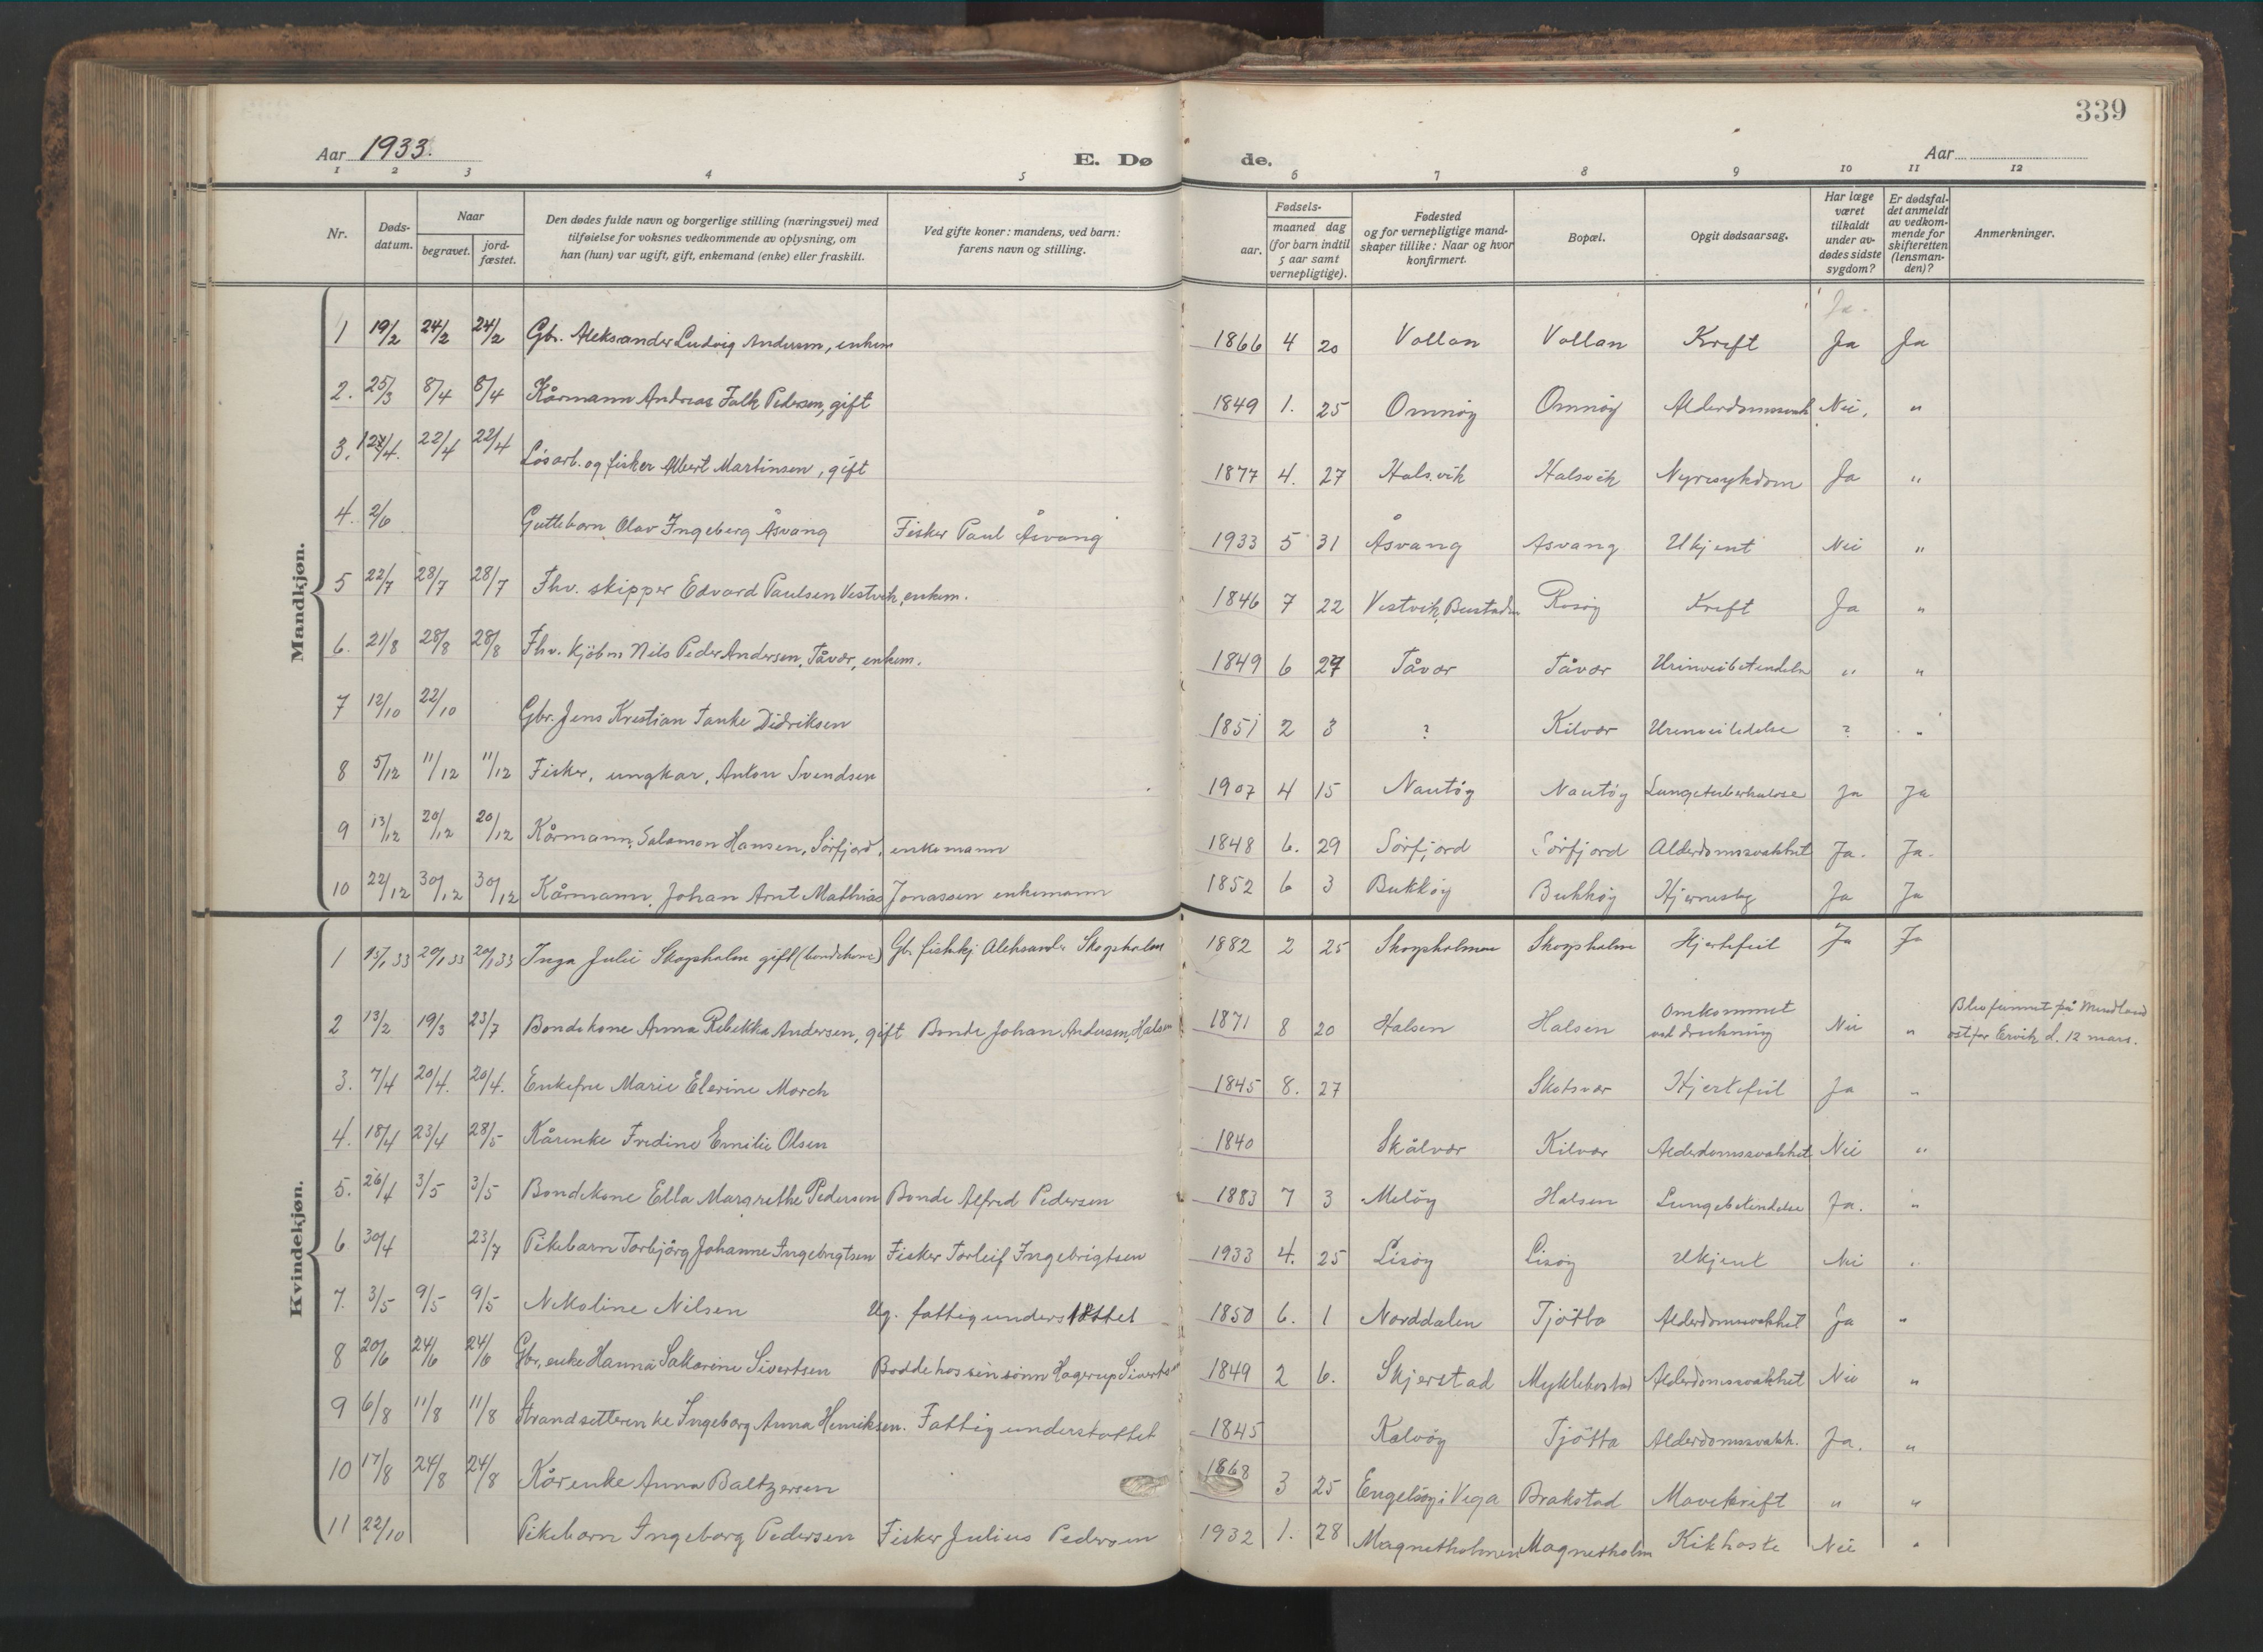 339
Aar 1933. E. Dø de. Aar
1 2 3 4 5 6 7 8 9 10 11 12
Nr.
Døds-
datum.
Naar
begravet.
jord-
fæstet.
Den dødes fulde navn og borgerlige stilling (næringsvei) med
tilføielse for voksnes vedkommende av oplysning, om
han (hun) var ugift, gift, enkemand (enke) eller fraskilt.
Ved gifte koner: mandens, ved barn:
farens navn og stilling.
Fødsels-
aar.
maaned dag
(for barn indtil
5 aar samt
vernepligtige).
Fødested
og for vernepligtige mand-
skaper tillike: Naar og hvor
konfirmert.
Bopæl.
Opgit dødsaarsag.
Har læge
været
tilkaldt
under av-
dødes sidste
sygdom?
Er dødsfal-
det anmeldt
av vedkom-
mende for
skifteretten
(lensman-
den)?
Anmerkninger.
Mandkjøn.
Ja.
1 19/2 24/2 24/2 Gbr. Aleksander Ludvig Andersen, enkem 1866 4 20 Vollan Vollan Kreft Ja Ja
2. 25/3 8/4 8/4 Kårmann Andreas Falk Pedersen, gift 1849 1. 25 Omnöy Omnöy Alderdomssvakh Nei. "
3. 22/4 22/4 Lösarb. og fisker Albert Martinsen, gift 1877 4. 27 Halsvik Halsvik Nyresykdom Ja "
4. 2/6 Guttebarn Olav Ingeberg Åsvang Fisker Paul Åsvang 1933 5 31 Åsvang Åsvang Ukjent Nei "
5 22/7 28/7 28/7 Fhv. skipper Edvard Paulsen Vestvik, enkem. 1846 7 22 Vestvik, Bustaden Rosöy Kreft Ja "
6. 21/8 28/8 28/8 Fhv. kjöbm Nils Peder Andersen, Tåvær, enkem. 1849 6 27 Tåvær Tåvær Urinveisbetendelse " "
7 12/10 22/10 Gbr. Jens Kristian Tanke Didriksen 1851 2 3 ? Kilvær Urinveislidelse ? "
8 5/12 11/12 11/12 Fisker, ungkar, Anton Svendsen 1907 4 15 Nautöy Nautöy Lungetuberkulose Ja Ja
9 13/12 20/12 20/12 Kårmann, Salamon Hansen, Sörfjord, enkemann 1848 6. 29 Sörfjord Sörfjord Alderdomssvakhet Ja. Ja.
10 22/12 30/12 30/12 Kårmann, Johan Arnt Mathias Jonassen enkemann 1852 6 3 Bukköy Bukköy Hjerneslag Ja Ja
Kvindekjøn.
1 15/1 33 20/1 33 20/1 33 Inga Julie Skogsholm gift (bondekone) Gb. fiskkj. Aleksander Skogsholm 1882 2 25 Skogsholmen Skogsholm Hjertefeil Ja Ja
2 13/2 19/3 23/7 Bondekone Anna Rebekka Andersen, gift Bonde Johan Andersen, Halsen 1871 8 20 Halsen Halsen Omkommet
ved drukning Nei " Blev funnet på Mindland
öst for Ervik d. 12 mars.
3. 7/4 20/4. 20/4. Enkefru Marie Elerine Morch 1845 8. 27 Skotsvær Hjertefeil Ja "
4. 18/4 23/4 28/5 Kårenke Fredine Emilie Olsen 1840 Skålvær Kilvær Alderdomssvakhet Nei "
5. 26/4 3/5 3/5 Bondekone Ella Margrethe Pedersen Bonde Alfred Pedersen 1883 7 3 Melöy Halsen Lungebetendelse Ja. "
6 30/4 23/7 Pikebarn Torbjörg Johanne Ingebrigtsen Fisker Torleif Ingebrigtsen 1933 4. 25 Lisöy Lisöy Ukjent Nei "
7. 3/5 9/5 9/5 Nikoline Nilsen Ug. fattigunderstöttet 1850 6. 1 Norddalen Tjötta Alderdomssvakhet Ja "
8 20/6 24/6 24/6 Gbr. enke Hanna Sakarine Sivertsen Bodde hos sin sönn Hagerup Sivertsen 1849 2 6. Skjerstad Myklebostad Alderdomssvakhet Nei "
9 6/8 11/8 11/8 Strandsitterenke Ingeborg Anna Henriksen. Fattigunderstöttet 1845 Kalvöy Tjötta Alderdomssvakh. Ja. "
10 17/8 24/8 24/8 Kårenke Anna Baltzersen 1868 3 25 Engelsöy i Vega Brakstad Mavekreft " "
11 22/10 Pikebarn Ingeborg Pedersen Fisker Julius Pedersen 1932 1. 28 Magnetholmen Magnetholm Kikhoste Nei "